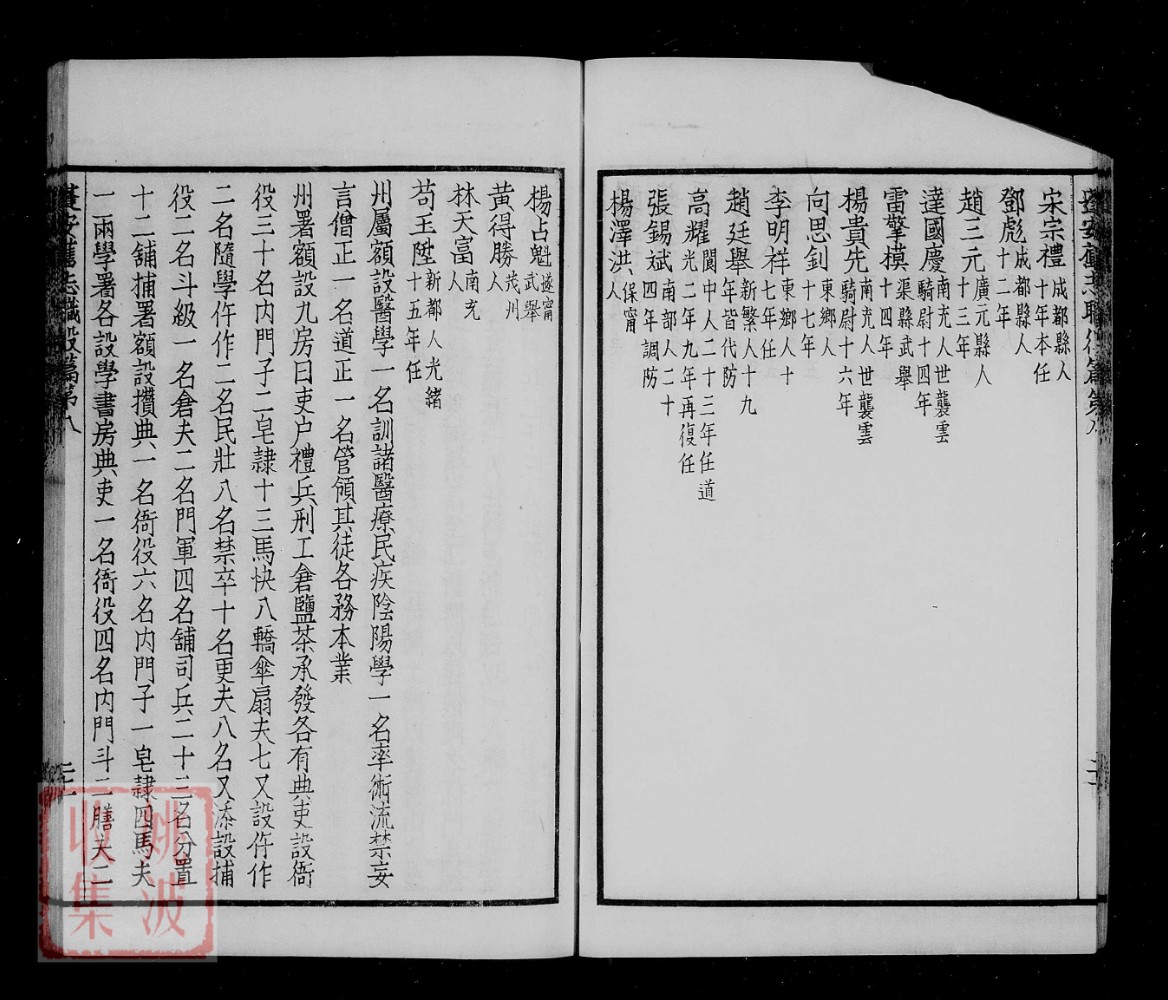 蓬安舊志職役篇第八
宋宗禮成都縣人十年本任
鄧彪成都縣人十二年
趙三元廣元縣人十三年
達國慶南充人世襲雲騎尉十四年
雷擎模渠縣武舉十四年
楊貴先南充人世襲雲騎尉十六年
向思釗東鄉人十七年
李明祥東鄉人十七年任
趙廷舉新繁人十九年皆代防
高耀閬中人二十三年任道光二年九年再復任
張錫斌南部人二十四年調防
楊澤洪保甯人
楊占魁遂甯武舉
黃得勝茂州人
林天富南充人
苟玉陞新都人光緒十五年任
州屬額設醫學一名訓諸醫療民疾陰陽學一名率術流禁妄
言僧正一名道正一名管領其徒各務本業
州署額設九房曰吏户禮兵刑工倉鹽茶承發各有典吏設衙
役三十名内門子二皂隸十三馬快八轎傘扇夫七又設仵作
二名隨學仵作二名民壯八名禁卒十名更夫八名又添設捕
役二名斗級一名倉夫二名門軍四名舖司兵二十三名分置
十二舖捕署額設攢典一名衙役六名内門子一皂隸四馬夫
一兩學署各設學書房典吏一名衙役四名内門斗二膳夫二
蓬安舊志職役篇第八
姚波
收集